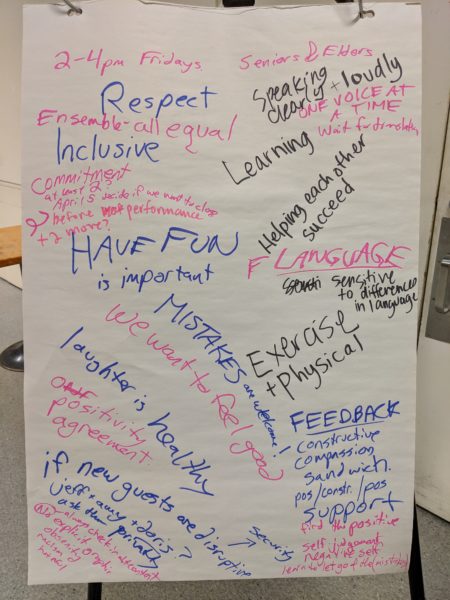 2-4pm Fridays
Seniors & Elders
Respect
Ensemble - all equal
Inclusive
Commitment
at least 2?
April 5 decide if we want to close
before performance
+ 2 more?
HAVE FUN
is important
MISTAKES are welcome!
We want to feel good
laughter is healthy
positivity
agreement
if new guests are disruptive
jeff + amy + doris?
ask them privately
security
NO
explicit
obscenity
racism
Speaking
clearly + loudly
ONE VOICE AT
A TIME
Wait for translation
Learning
Helping each other
succeed
F LANGUAGE
sensitive
to differences
in language
Exercise
+ physical
FEEDBACK
constructive
compassion
sandwich
pos/constr./pos
support
find the positive
self judgement
negative self
learn to let go of the mistakes